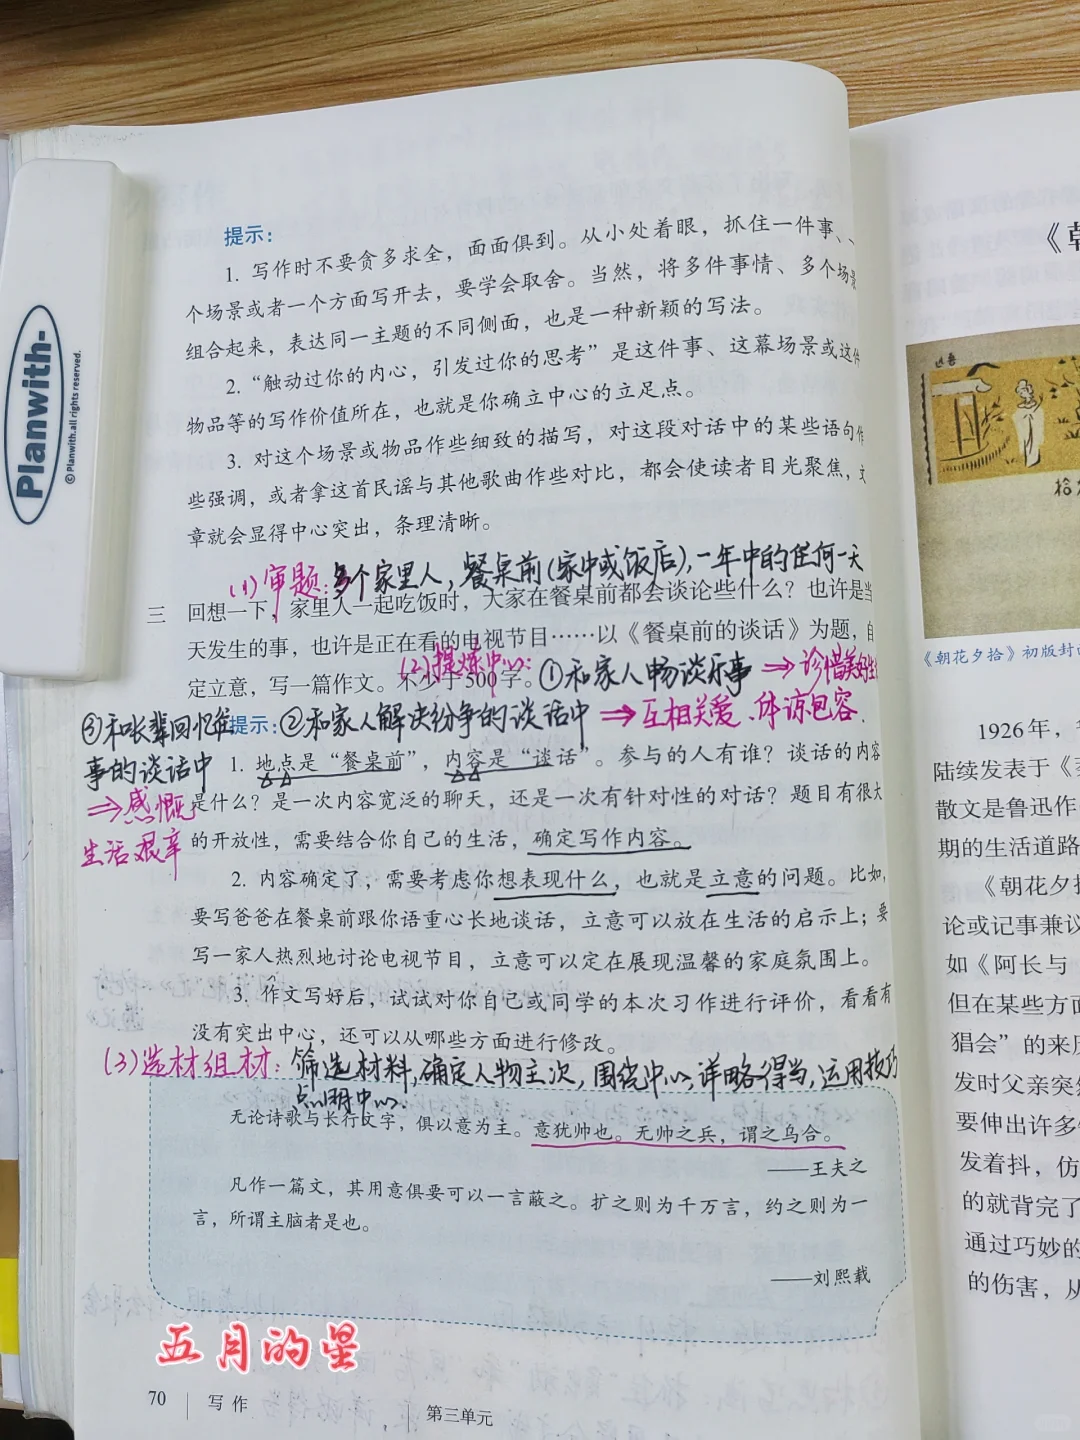 提示：
1. 写作时不要贪多求全，面面俱到。从小处着眼，抓住一件事、一
个场景或者一个方面写开去，要学会取舍。当然，将多件事情、多个场景
组合起来，表达同一主题的不同侧面，也是一种新颖的写法。
2. “触动过你的内心，引发过你的思考”是这件事、这幕场景或这件
物品等的写作价值所在，也就是你确立中心的立足点。
3. 对这个场景或物品作些细致的描写，对这段对话中的某些语句作
些强调，或者拿这首民谣与其他歌曲作些对比，都会使读者目光聚焦，文
章就会显得中心突出，条理清晰。
(1)审题：多个家里人，餐桌前(家中或饭店)，一年中的任何一天
三 回想一下，家里人一起吃饭时，大家在餐桌前都会谈论些什么？也许是当
天发生的事，也许是正在看的电视节目……以《餐桌前的谈话》为题，自
(2)提炼中心：①和家人畅谈乐事⇒珍惜美好生
定立意，写一篇作文。不少于500字。
②和家人解决纷争的谈话中⇒互相关爱、体谅包容
③和长辈回忆往
事的谈话中
⇒感慨
生活艰辛
提示：
1. 地点是“餐桌前”，内容是“谈话”。参与的人有谁？谈话的内容
是什么？是一次内容宽泛的聊天，还是一次有针对性的对话？题目有很大
的开放性，需要结合你自己的生活，确定写作内容。
2. 内容确定了，需要考虑你想表现什么，也就是立意的问题。比如，
要写爸爸在餐桌前跟你语重心长地谈话，立意可以放在生活的启示上；要
写一家人热烈地讨论电视节目，立意可以定在展现温馨的家庭氛围上。
3. 作文写好后，试试对你自己或同学的本次习作进行评价，看看有
没有突出中心，还可以从哪些方面进行修改。
(3)选材组材：筛选材料，确定人物主次，围绕中心，详略得当，运用技巧
点明中心.
无论诗歌与长行文字，俱以意为主。意犹帅也。无帅之兵，谓之乌合。
——王夫之
凡作一篇文，其用意俱要可以一言蔽之。扩之则为千万言，约之则为一
言，所谓主脑者是也。
——刘熙载
五月的星
70 写作 第三单元
Planwith-
© Planwith.all rights reserved.
《朝
《朝花夕拾》初版封面
1926年，
陆续发表于《
散文是鲁迅作
期的生活道路
《朝花夕拾
论或记事兼议
如《阿长与
但在某些方面
猖会”的来历
发时父亲突然
要伸出许多
发着抖，仿
的就背完了
通过巧妙的
的伤害，从